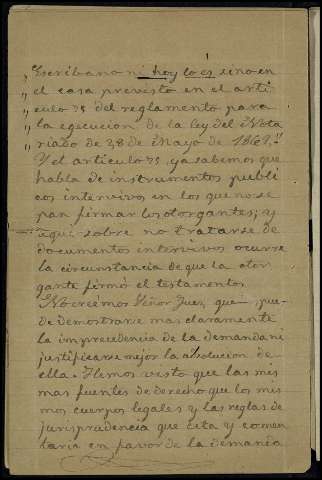 „Escribano ni hoy lo és sino en
„ el caso previsto en el arti
„ culo 75 del reglamento para
„ la egecucion de la ley del Nota
„ riado de 28 de Mayo de 1862."
Y el articulo 75, ya sabemos que
habla de instrumentos publi
cos intervivos en los que no se
pan firmar los otorgantes; y
aqui sobre no tratarse de
documentos intervivos ocurre
la circunstancia de que la otor
gante firmó el testamento.
No creemos Señor Juez, que pue-
de demostrarse mas claramente
la improcedencia de la demanda ni
justificarse mejor la absolucion de
ella. Hemos visto que las mis
mas fuentes de derecho que los mis
mos cuerpos legales y las reglas de
jurisprudencia que cita y comen
taria en favor de la demanda